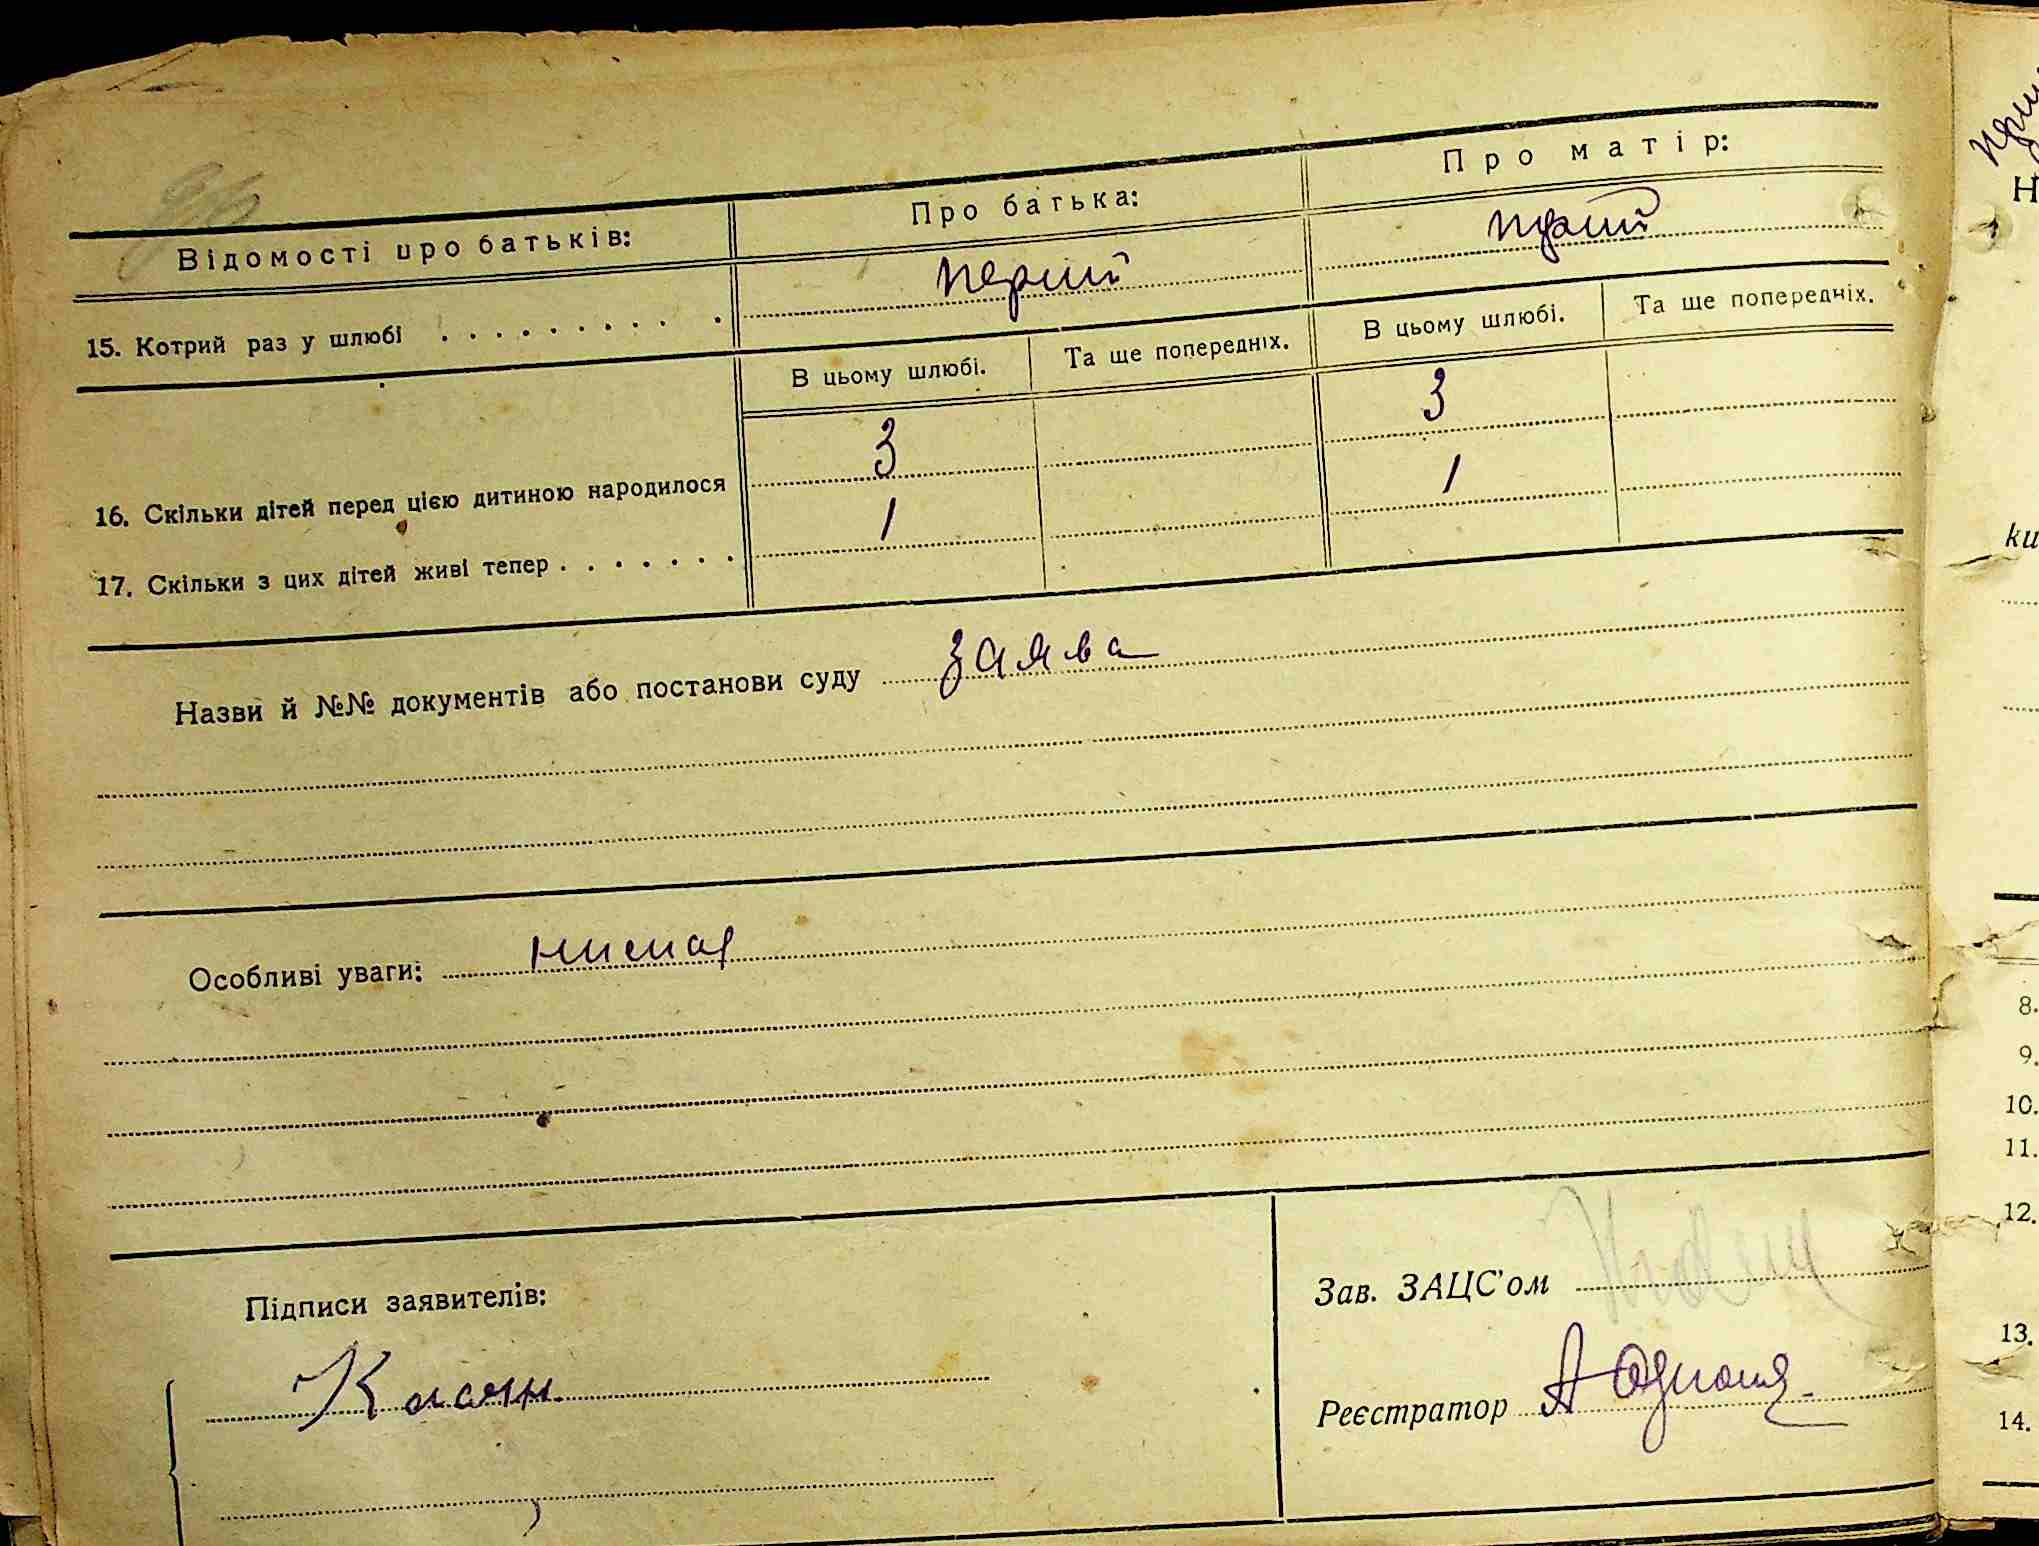 Відомості про батьків:
Про батька:
Про матір:
15. Котрий раз у шлюбі . . . . . . . . . .
перший
перший
В цьому шлюбі.
Та ще попередніх.
В цьому шлюбі.
Та ще попередніх.
16. Скільки дітей перед цією дитиною народилося
3
3
17. Скільки з цих дітей живі тепер . . . . . . .
1
1
Назви й №№ документів або постанови суду заява
Особливі уваги: нимая
Підписи заявителів:
Касян
Зав. ЗАЦС'ом
Реєстратор А
Н
ки
8.
9.
10.
11.
12.
13.
14.